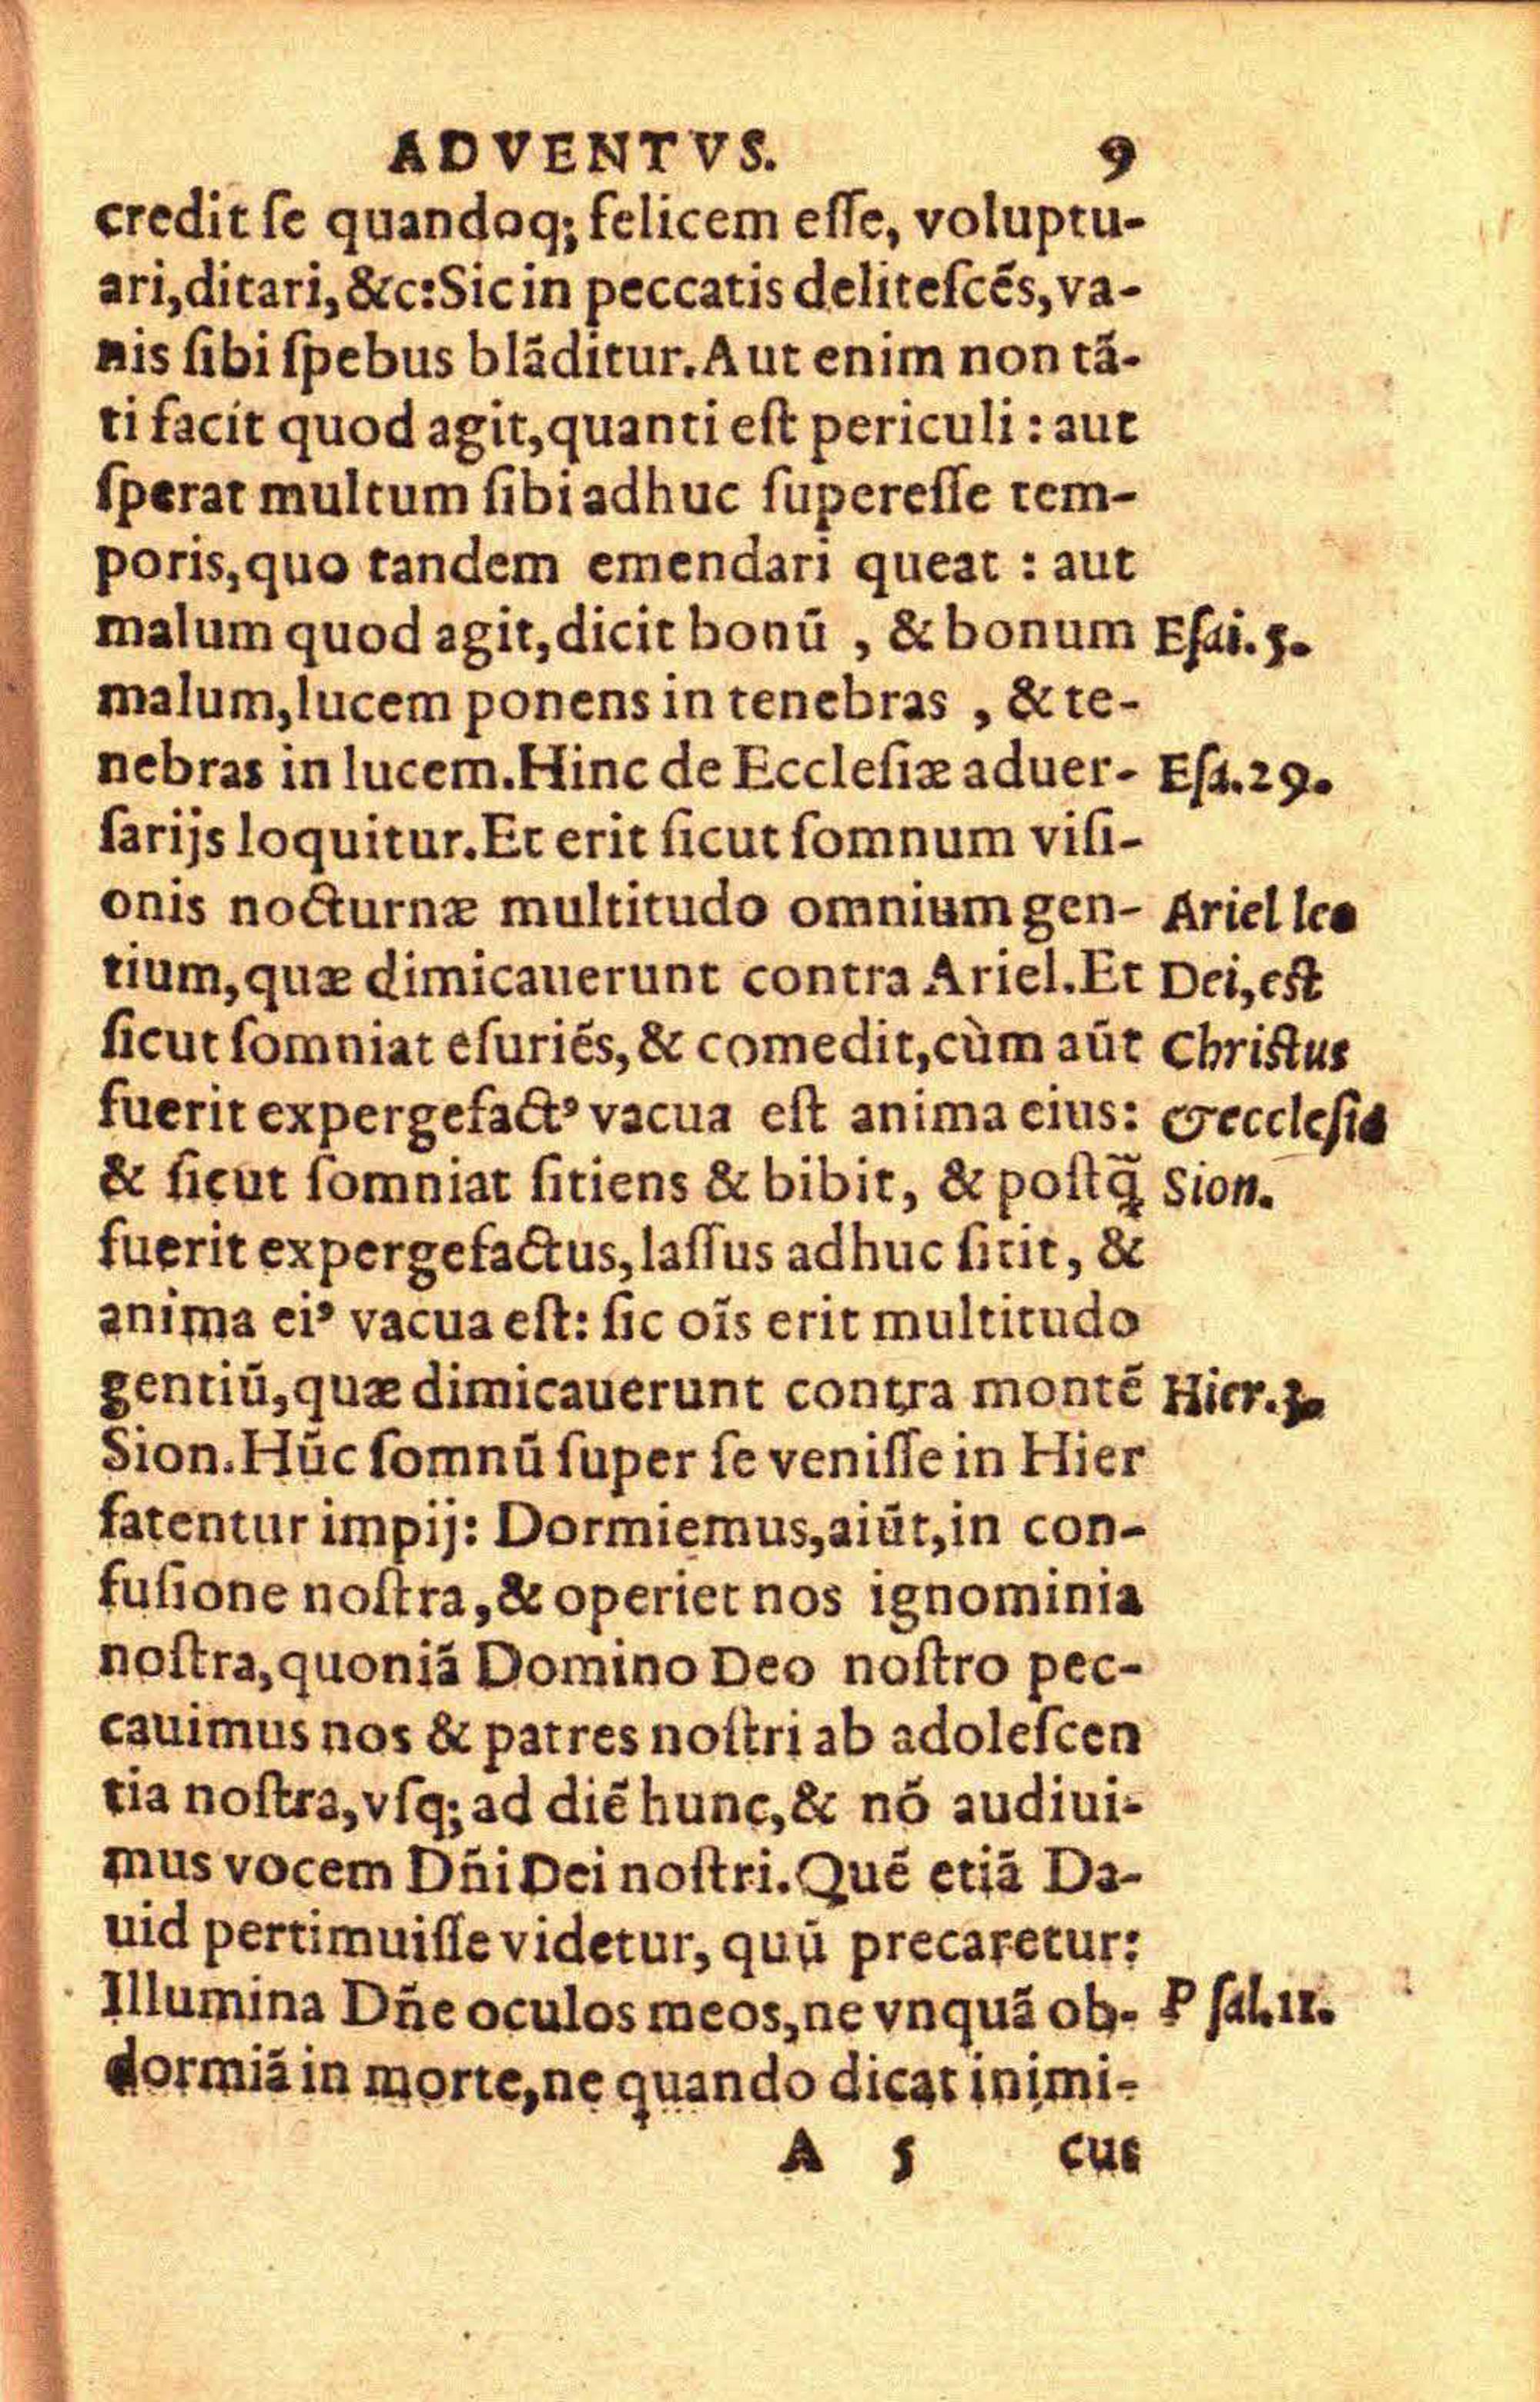 ADVENTVS. 9
credit ſe quandoq; felicem eſſe, voluptu-
ari, ditari, &c: Sic in peccatis deliteſcẽs, va-
nis ſibi ſpebus blãditur. Aut enim non tã-
ti facit quod agit, quanti eſt periculi : aut
ſperat multum ſibi adhuc ſupereſſe tem-
poris, quo tandem emendari queat : aut
malum quod agit, dicit bonũ , & bonum Eſai. 5.
malum, lucem ponens in tenebras , & te-
nebras in lucem. Hinc de Eccleſiæ aduer- Eſa. 29.
ſarijs loquitur. Et erit ſicut ſomnum viſi-
onis nocturnæ multitudo omnium gen- Ariel leo
tium, quæ dimicauerunt contra Ariel. Et Dei, eſt
ſicut ſomniat eſuriẽs, & comedit, cùm aũt Chriſtus
fuerit expergefactꝰ vacua eſt anima eius: & eccleſia
& ſicut ſomniat ſitiens & bibit, & poſtq̃ Sion.
fuerit expergefactus, laſſus adhuc ſitit, &
anima eiꝰ vacua eſt: ſic oĩs erit multitudo
gentiũ, quæ dimicauerunt contra montẽ Hier. 3.
Sion. Hũc ſomnũ ſuper ſe veniſſe in Hier
fatentur impij: Dormiemus, aiũt, in con-
fuſione noſtra, & operiet nos ignominia
noſtra, quoniã Domino Deo noſtro pec-
cauimus nos & patres noſtri ab adoleſcen
tia noſtra, vſq; ad diẽ hunc, & nõ audiui-
mus vocem Dñi Dei noſtri. Quẽ etiã Da-
uid pertimuiſſe videtur, quũ precaretur:
Illumina Dñe oculos meos, ne vnquã ob- Pſal. 12.
dormiã in morte, ne quando dicat inimi-
A 5 cus